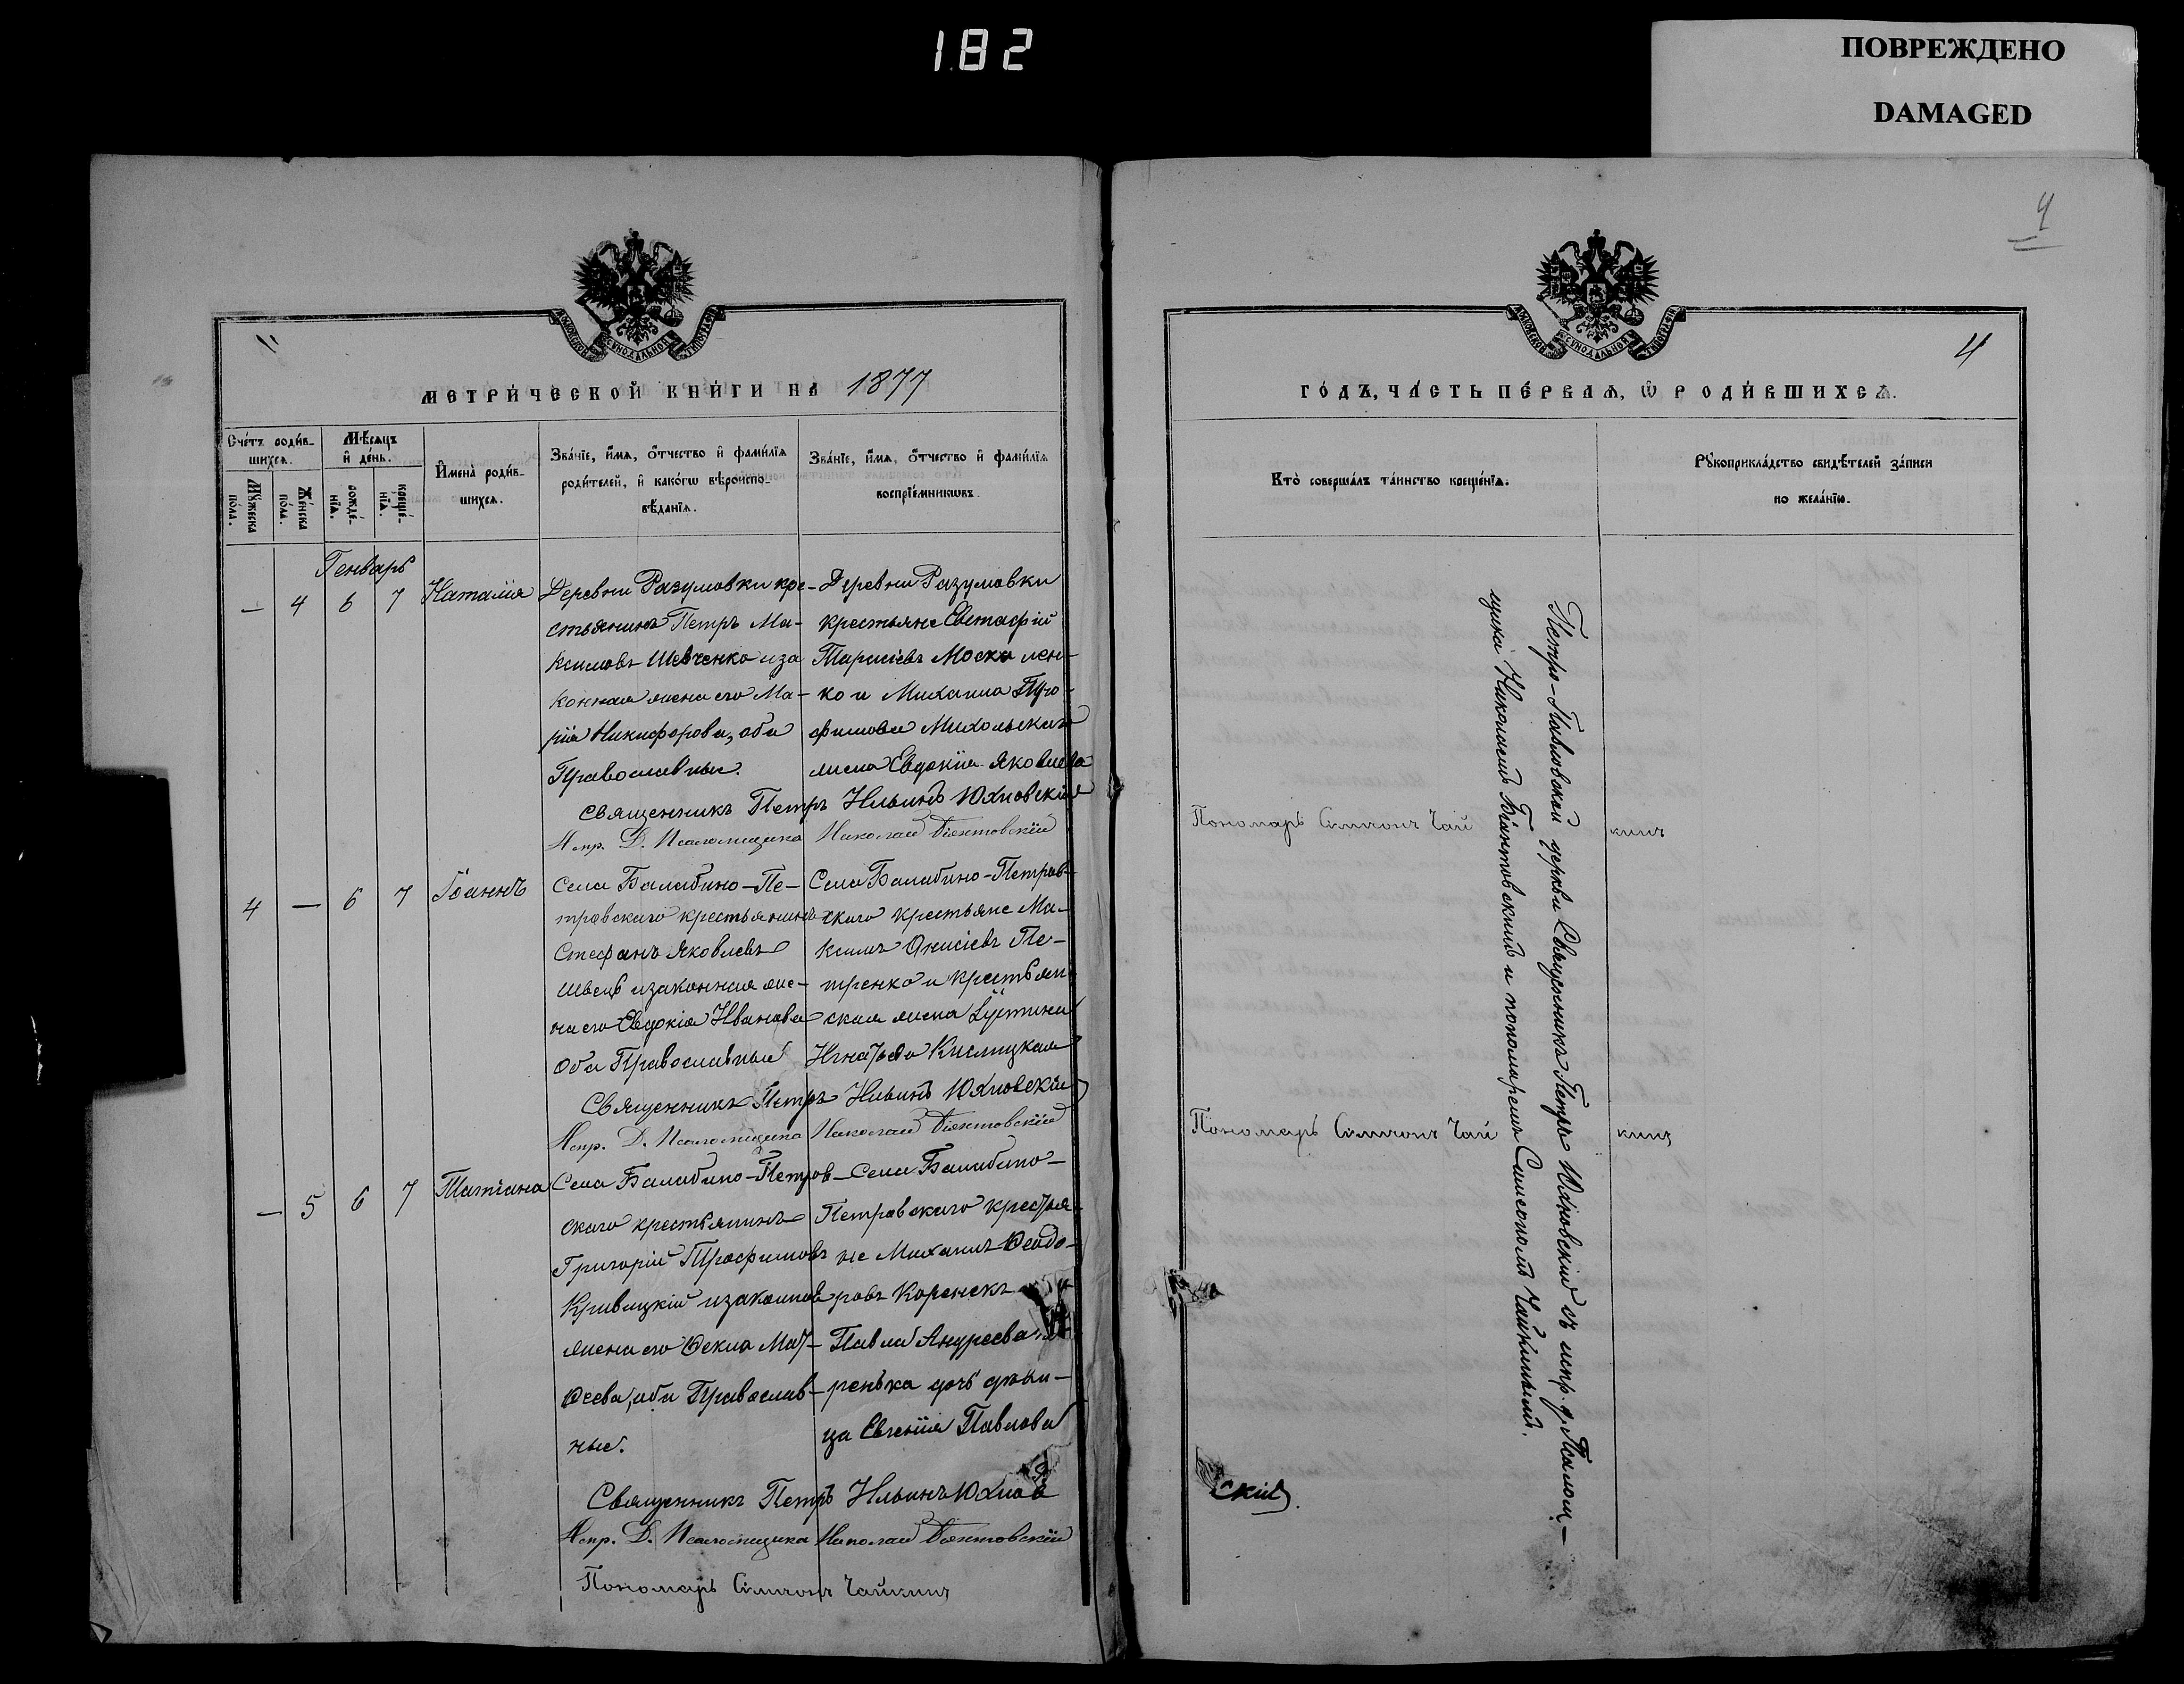 182
ПОВРЕЖДЕНО
DAMAGED
4
МОСКОВСКОЙ СѴНОДАЛЬНОЙ ТИПОГРАФІИ
МЕТРИ́ЧЕСКОЙ КНИ́ГИ НА 1877
Сче́тъ роди́в-
шихсѧ.
Мꙋ́жеска
по́ла.
Же́нска
по́ла.
Мѣ́сѧцъ
и҆ де́нь.
рожде́-
нїѧ.
креще́-
нїѧ.
И҆мена̀ роди́в-
шихсѧ.
Зва́нїе, и҆́мѧ, ѻ҆́тчество и҆ фами́лїѧ
роди́телей, и҆ како́гѡ вѣроиспо-
вѣ́данїѧ.
Зва́нїе, и҆́мѧ, ѻ҆́тчество и҆ фами́лїѧ
воспрїе́мникѡвъ.
Генварь
— 4 6 7 Наталія
Деревни Разумовки кре-
стьянинъ Петръ Ма-
ксимовъ Шевченко иза
конная жена его Ма-
рія Никифорова, оба
Православные.
Деревни Разумовки
крестьяне Евстафій
Тарасіевъ Москален-
ко и Михаила Тро-
фимова Михольскаго
жена Евдокія Яковлева
Священникъ Петръ Ильинъ Юхновскій
Испр. Д. Псаломщика Николай Біянтовскій
4 — 6 7 Іоаннъ
Села Балабино-Пе-
тровскаго крестьянинъ
Стефанъ Яковлевъ
Швецъ изаконная же-
на его Евдокія Иванова
оба Православные
Села Балабино-Петров-
скаго крестьяне Ма-
ксимъ Онисіевъ Пе-
тренко и крестьян
ская жена Іустина
Игнатьева Кислицкая
Священникъ Петръ Ильинъ Юхновскій
Испр. Д. Псаломщика Николай Біянтовскій
— 5 6 7 Татіана
Села Балабино-Петров-
скаго крестьянинъ
Григорій Трофимовъ
Кривицкій изаконная
жена его Ѳекла Мат-
ѳеева, оба Православ-
ные.
Села Балабино-
Петровскаго крестья-
не Михаилъ Ѳеодо-
ровъ
Павла Андреева
ренька дочь дѣви-
ца Евгенія Павлова
Священникъ Петръ Ильинъ Юхнов
Испр. Д. Псаломщика Николай Біянтовскій
Пономарь Симеонъ Чайкинъ
МОСКОВСКОЙ СѴНОДАЛЬНОЙ ТИПОГРАФІИ
4
ГО́ДЪ, ЧА́СТЬ ПЕ́РВАѦ, Ѽ РОДИ́ВШИХСѦ.
Кто̀ соверша́лъ та́инство креще́нїѧ.
Рꙋкоприкла́дство свидѣ́телей за́писи
по жела́нїю.
Петро-Павловской церкви Священникъ Петръ Юхновскій съ испр. д. Псалом-
щика Николаемъ Біантовскимъ и пономаремъ Симеономъ Чайкинымъ.
Пономарь Симеонъ Чай кинъ
Пономарь Симеонъ Чай кинъ
скій.